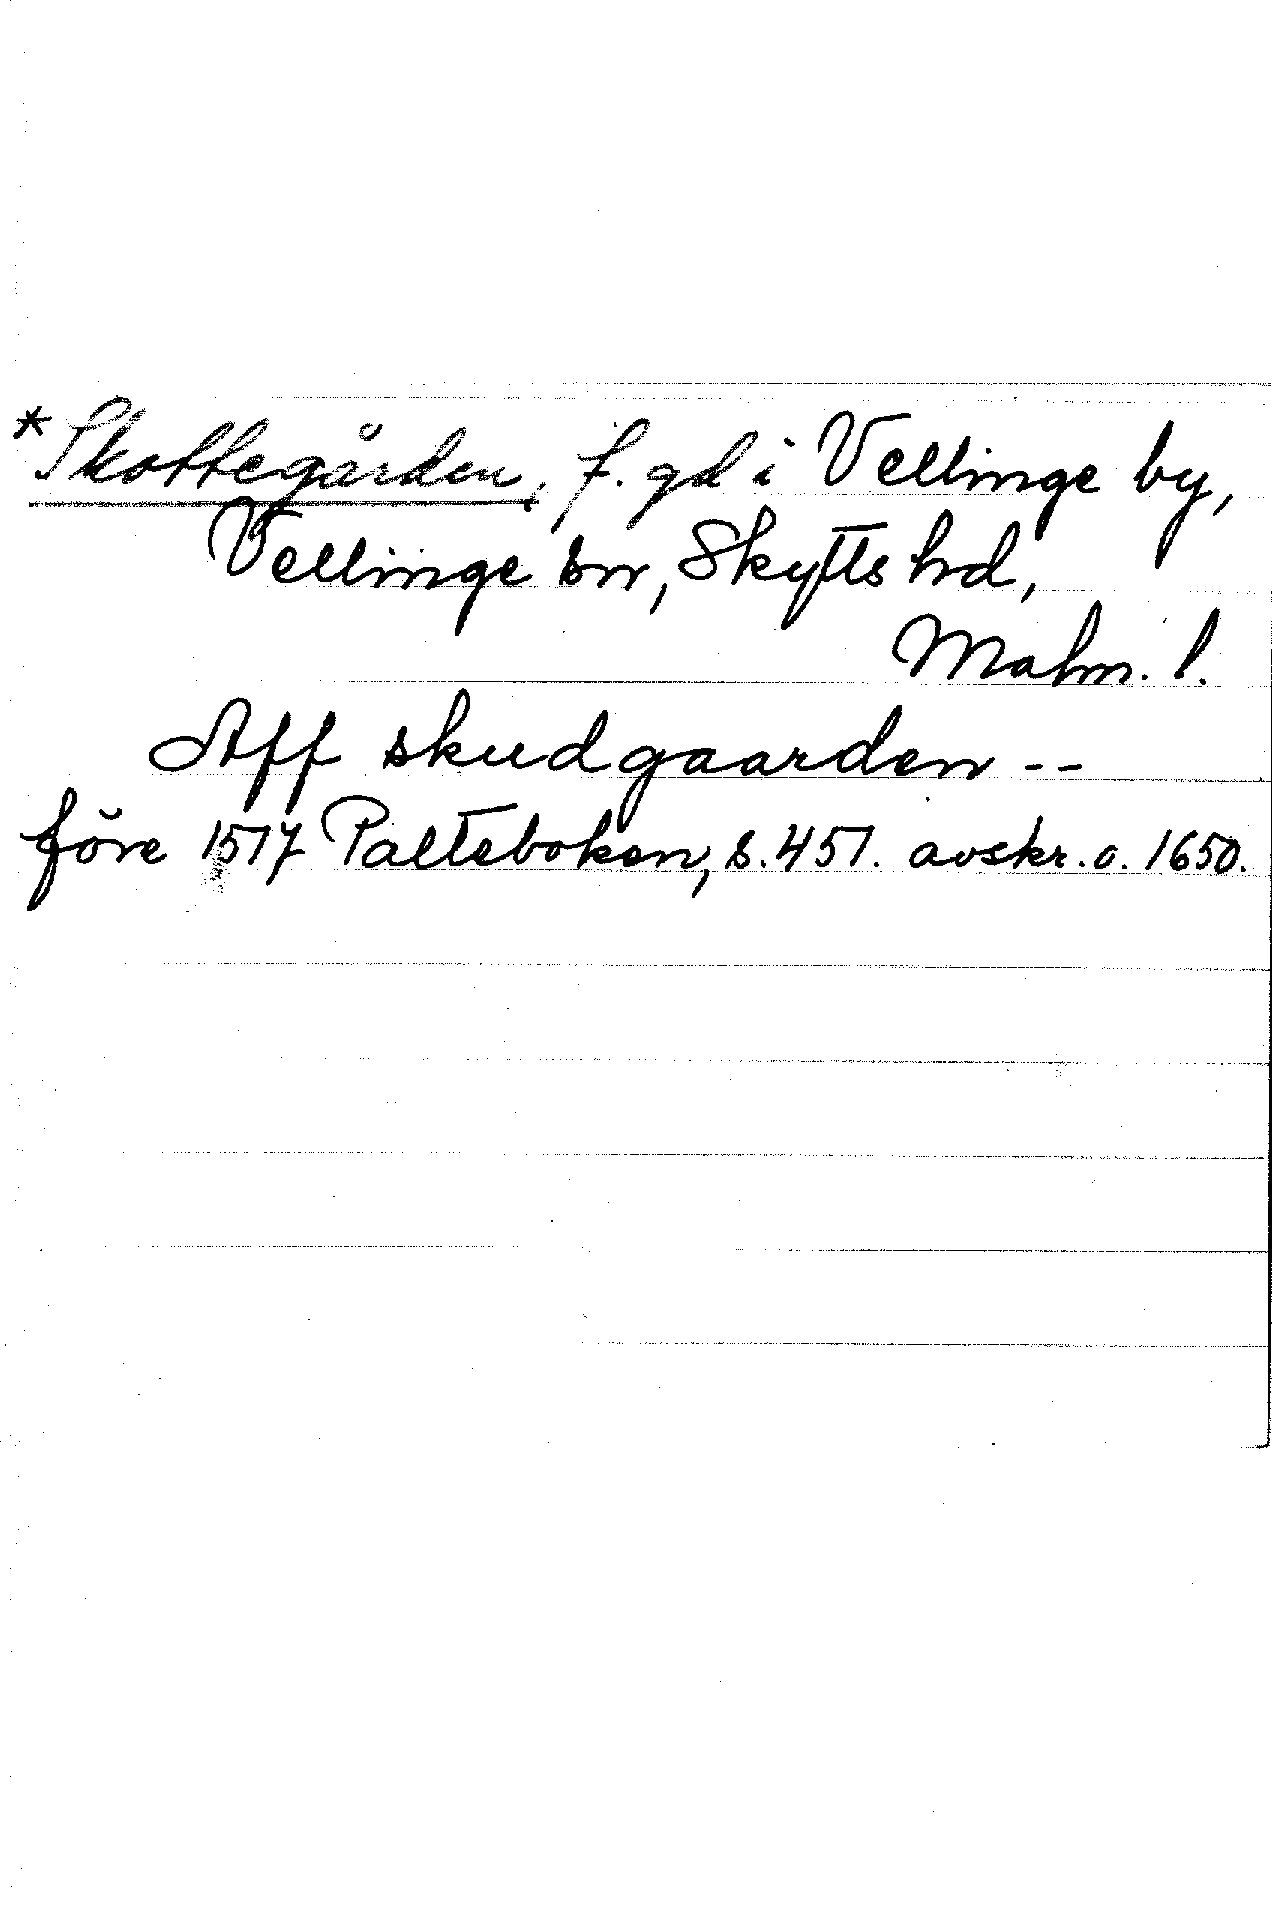 *Skottegården, f. gd i Vellinge by,
Vellinge sn, Skytts hd,
Malm. l.
Aff skudgaarden --
före 1517 Palteboken, s. 451. avskr. o. 1650.